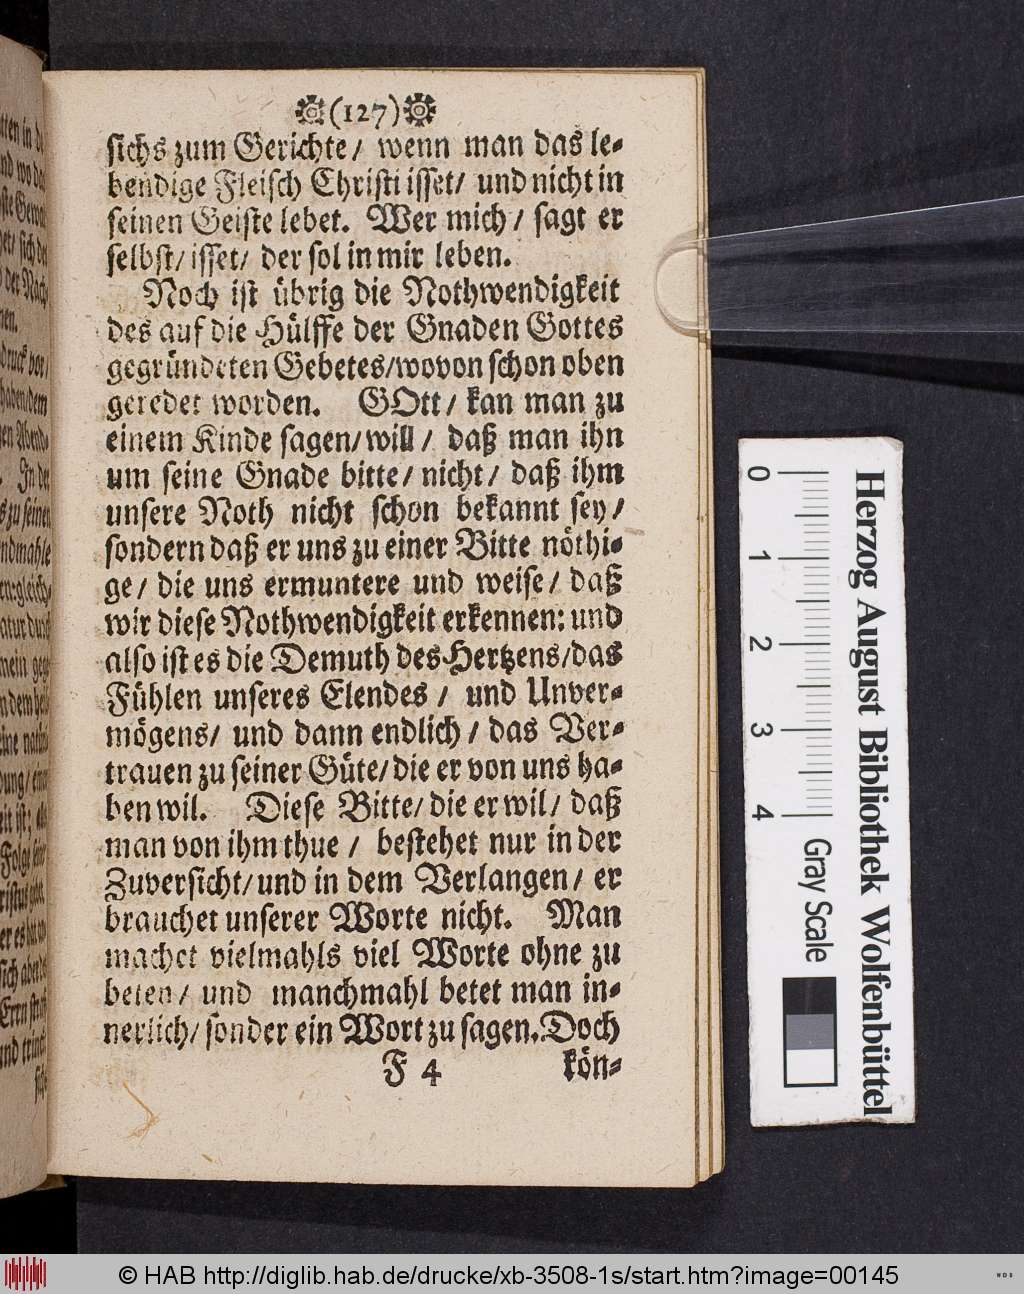 (127)
sichs zum Gerichte/ wenn man das le-
bendige Fleisch Christi isset/ und nicht in
seinen Geiste lebet. Wer mich/ sagt er
selbst/ isset/ der sol in mir leben.
Noch ist übrig die Nothwendigkeit
des auf die Hülffe der Gnaden Gottes
gegründeten Gebetes/ wovon schon oben
geredet worden. GOtt/ kan man zu
einem Kinde sagen/ will/ daß man ihn
um seine Gnade bitte/ nicht/ daß ihm
unsere Noth nicht schon bekannt sey/
sondern daß er uns zu einer Bitte nöthi-
ge/ die uns ermuntere und weise/ daß
wir diese Nothwendigkeit erkennen: und
also ist es die Demuth des Hertzens/ das
Fühlen unseres Elendes/ und Unver-
mögens/ und dann endlich/ das Ver-
trauen zu seiner Güte/ die er von uns ha-
ben wil. Diese Bitte/ die er wil/ daß
man von ihm thue/ bestehet nur in der
Zuversicht/ und in dem Verlangen/ er
brauchet unserer Worte nicht. Man
machet vielmahls viel Worte ohne zu
beten/ und manchmahl betet man in-
nerlich/ sonder ein Wort zu sagen. Doch
F 4 kön-
Herzog August Bibliothek Wolfenbüttel
0 1 2 3 4
Gray Scale
© HAB http://diglib.hab.de/drucke/xb-3508-1s/start.htm?image=00145